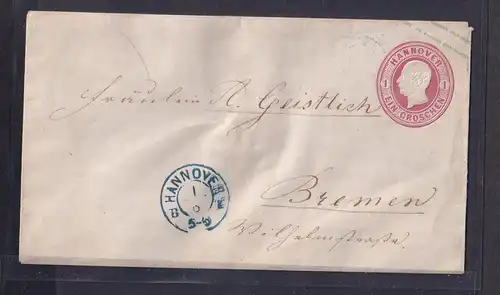 HANNOVER
1 1
EIN GROSCHEN
Fräulein A. Geistlich
HANNOVER
1
9
B
5-6
Bremen
Wilhelmstraße.